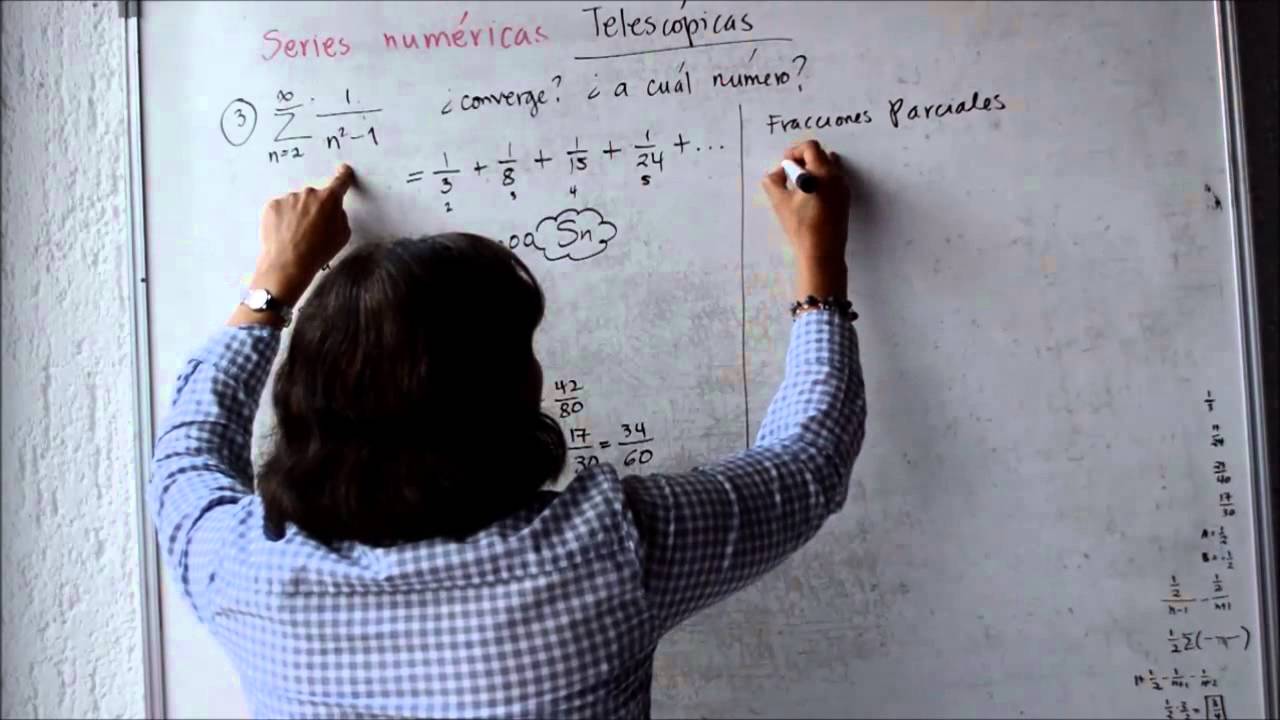 Series numéricas Telescópicas
③ ∞ Σ n=2 1/(n²-1) ¿converge? ¿a cuál número?
= 1/3 + 1/8 + 1/15 + 1/24 + ...
2 3 4 5
Sn
42/80
17/30 = 34/60
Fracciones Parciales
1/3
21/40
17/30
A = 1/2
B = -1/2
(1/2)/(n-1) - (1/2)/(n+1)